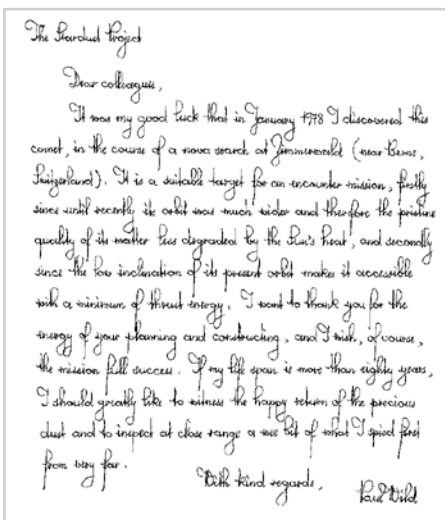 The Stardust Project
Dear colleagues,
It was my good luck that in January 1978 I discovered this
comet, in the course of a nova search at Zimmerwald (near Berne,
Switzerland). It is a suitable target for an encounter mission, firstly
since until recently its orbit was much wider and therefore the pristine
quality of its matter less degraded by the Sun's heat, and secondly
since the low inclination of its present orbit makes it accessible
with a minimum of thrust energy. I want to thank you for the
energy of your planning and constructing, and I wish, of course,
the mission full success. If my life span is more than eighty years,
I should greatly like to witness the happy return of the precious
dust and to inspect at close range a wee bit of what I spied first
from very far.
With kind regards,
Paul Wild